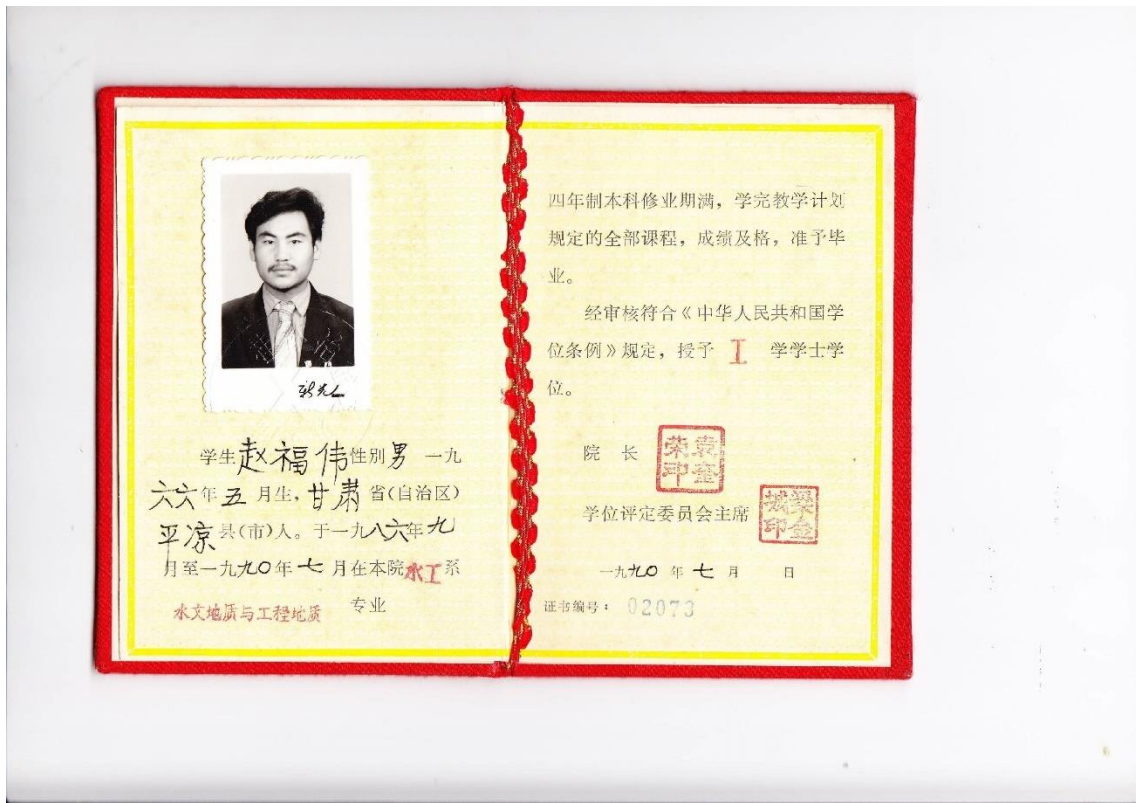 学生赵福伟性别男 一九
六六年五月生,甘肃省(自治区)
平凉县(市)人。于一九八六年九
月至一九九〇年七月在本院水工系
水文地质与工程地质 专业
四年制本科修业期满,学完教学计划
规定的全部课程,成绩及格,准予毕
业。
经审核符合《中华人民共和国学
位条例》规定,授予 工 学学士学
位。
院 长
学位评定委员会主席
一九九〇 年 七 月 日
证书编号: 02073